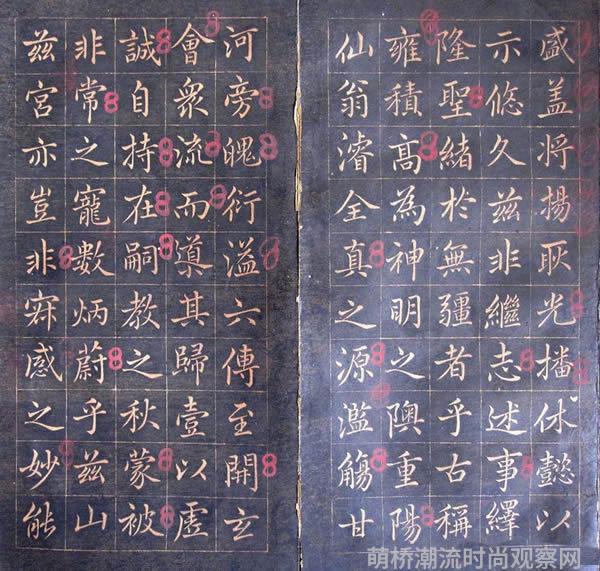 盛盖将揚耿光播休懿以
示悠久兹非繼志述事繹
隆聖緒於無疆者乎古稱
雍積高為神明之隩重陽
仙翁濬全真之源濫觴甘
河旁魄衍溢六傳至開玄
會衆流而導其歸壹以虛
誠自持在嗣教之秋蒙被
非常之寵數炳蔚乎兹山
兹宮亦豈非感之妙能
萌桥潮流时尚观察网